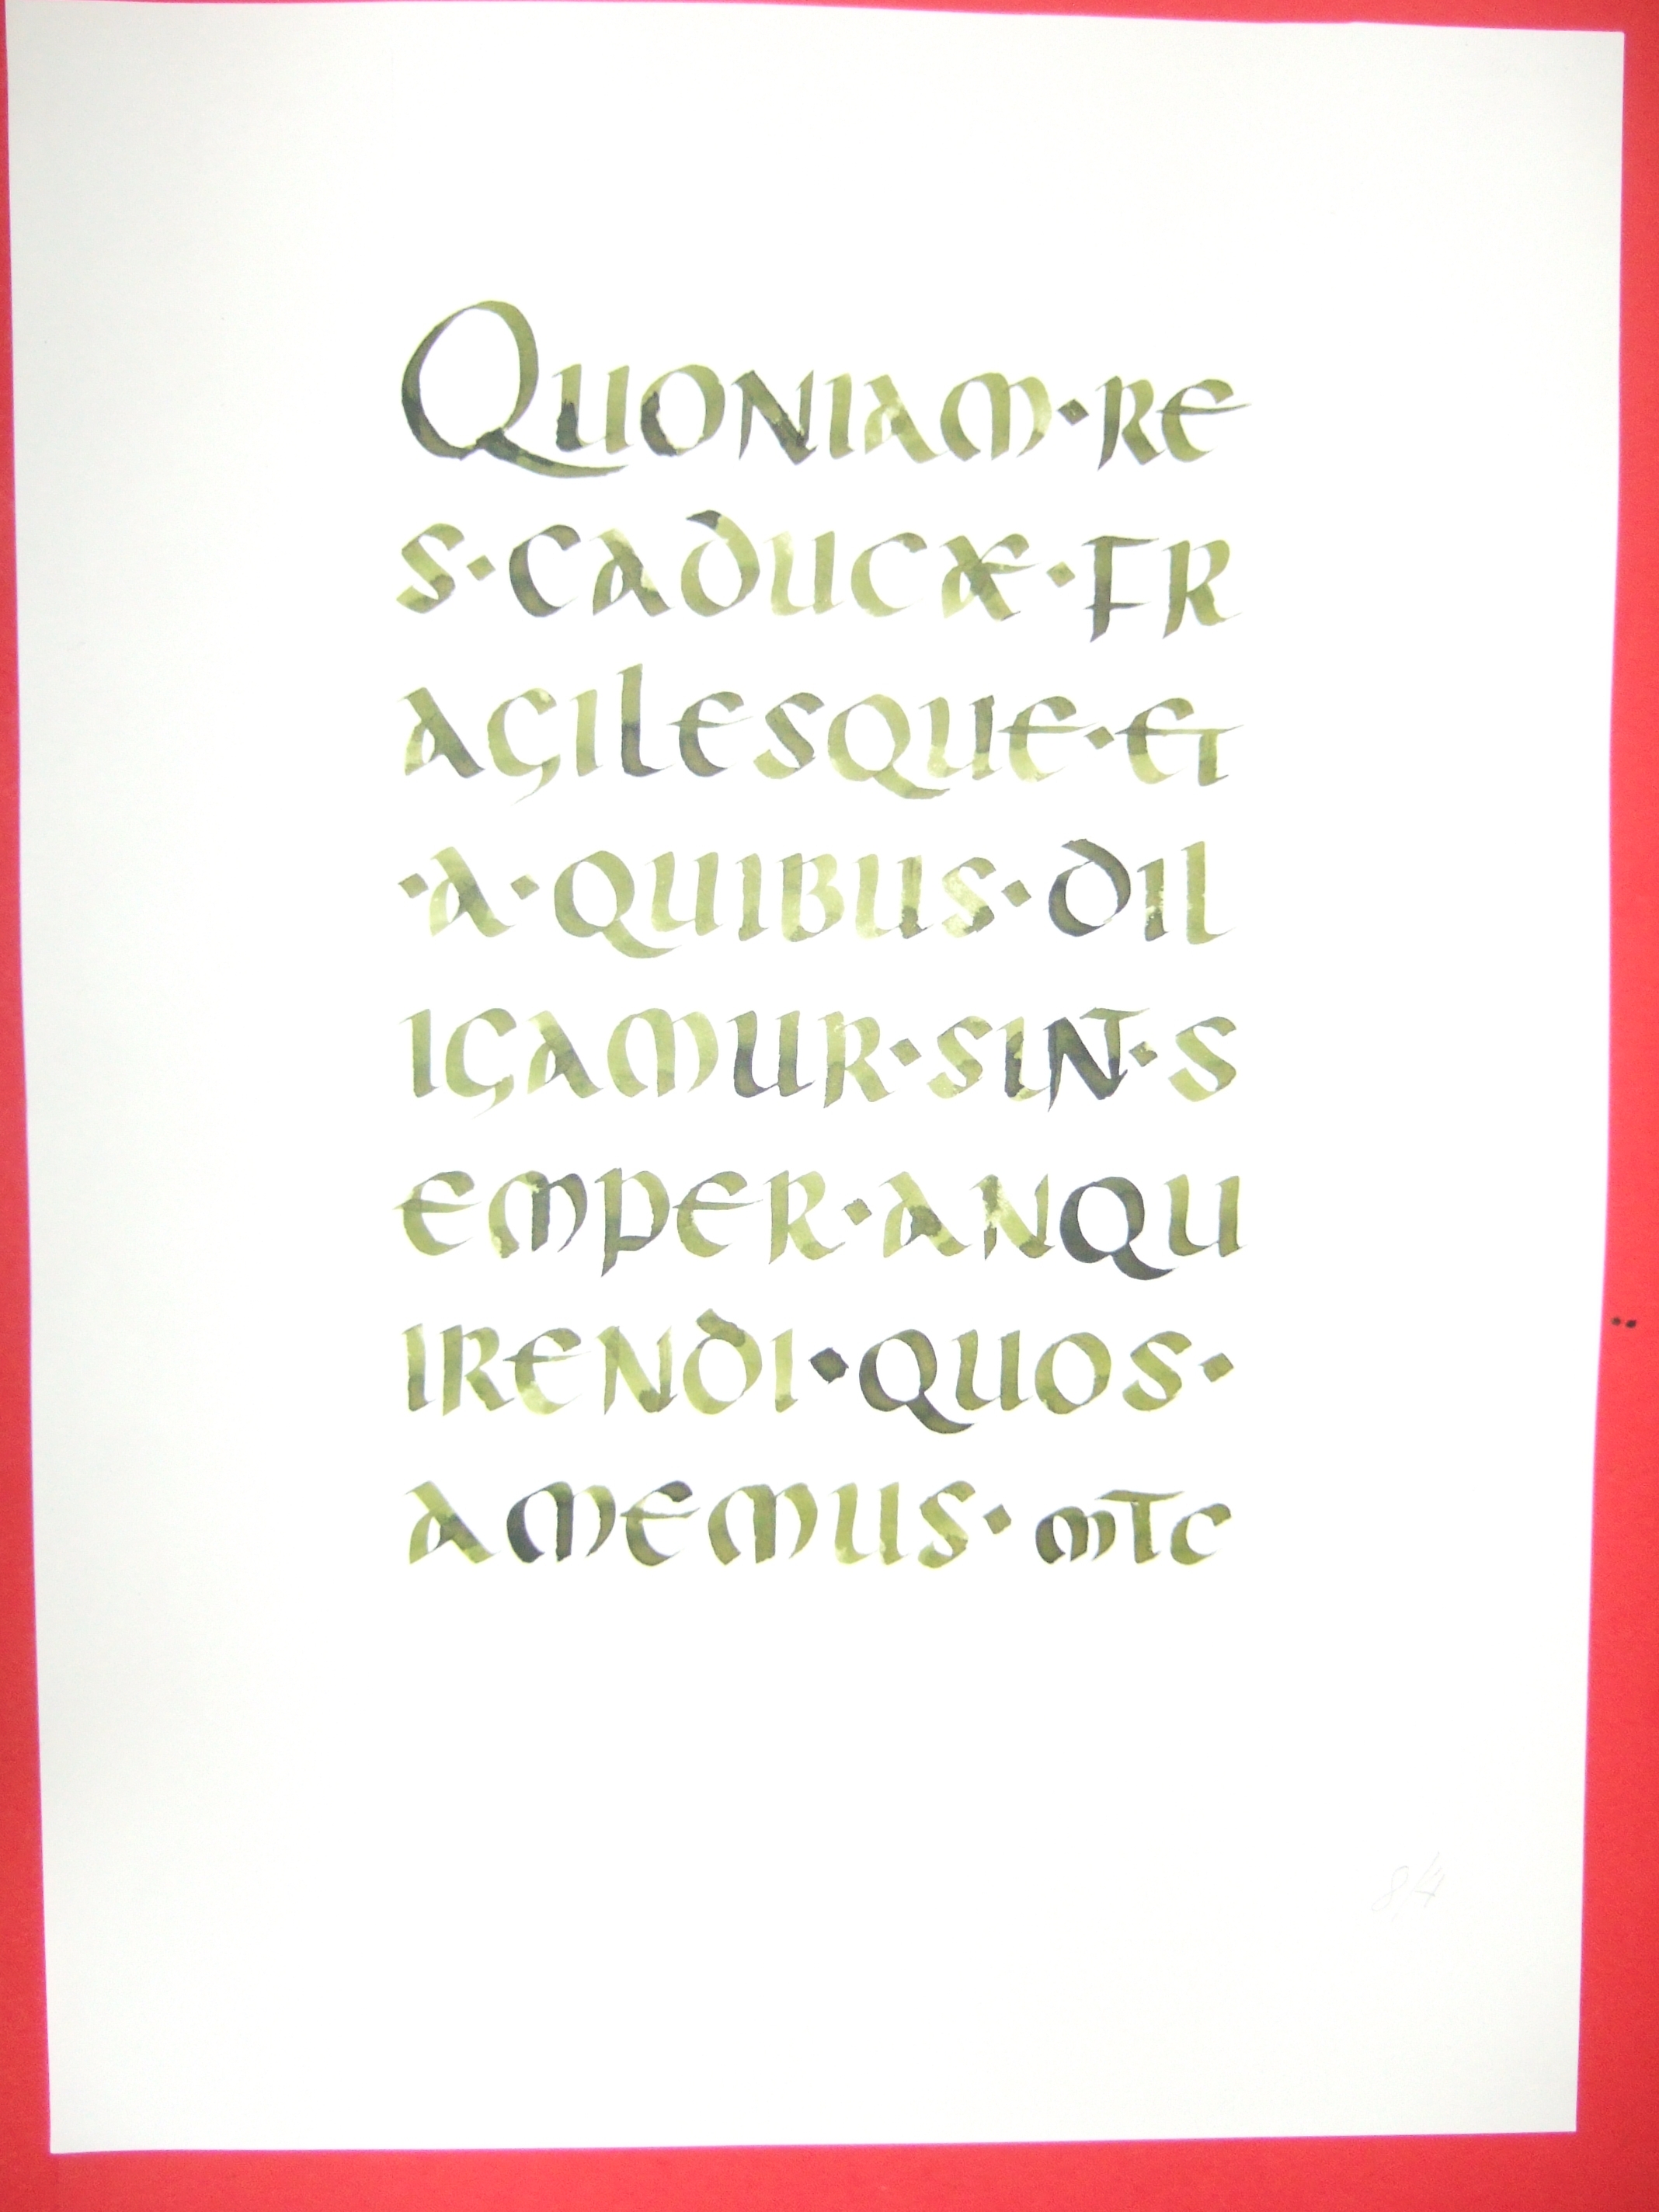 QUONIAM·RE
S·CADUCÆ·FR
AGILESQUE·ET
·A·QUIBUS·DIL
IGAMUR·SINT·S
EMPER·ANQU
IRENDI·QUOS·
AMEMUS·MTC